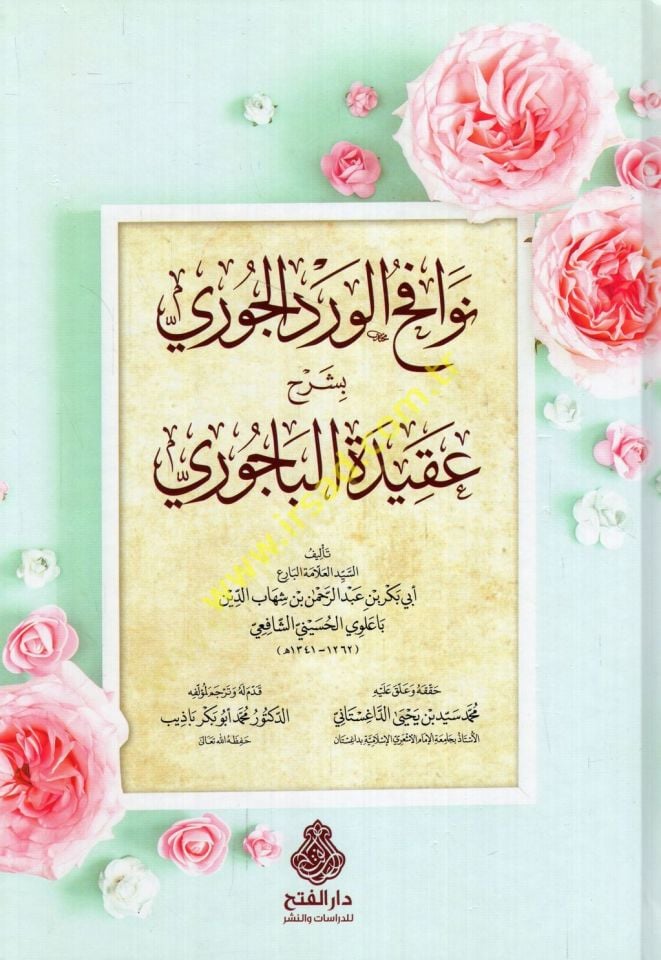 نَوَافِحُ الوَرْدِ الجُورِيّ
بِشَرْحِ
عَقِيدَةِ البَاجُورِيّ
تَأليفُ
السَّيِّد العَلَامَة البَارِع
أبي بَكْر بن عَبْد الرَّحْمٰن بن شِهَاب الدِّين
بَاعَلَوِي الحُسَيْنِيّ الشَّافِعِيّ
(١٢٦٢ - ١٣٤١ هـ)
حَقَّقَهُ وَعَلَّقَ عَلَيْهِ
مُحَمَّد سَيِّد بن يَحْيَى الدَّاغِسْتَانِيّ
الأُسْتَاذُ بِجَامِعَةِ الإِمَامِ الأَشْعَرِيّ الإِسْلَامِيَّةِ بِدَاغِسْتَان
قَدَّمَ لَهُ وَتَرْجَمَ لِمُؤَلِّفِهِ
الدُّكْتُور مُحَمَّد أبُو بَكْر بَاذِيب
حَفِظَهُ اللهُ تَعَالَى
دار الفتح
للدراسات والنشر
www.irsad.com.tr